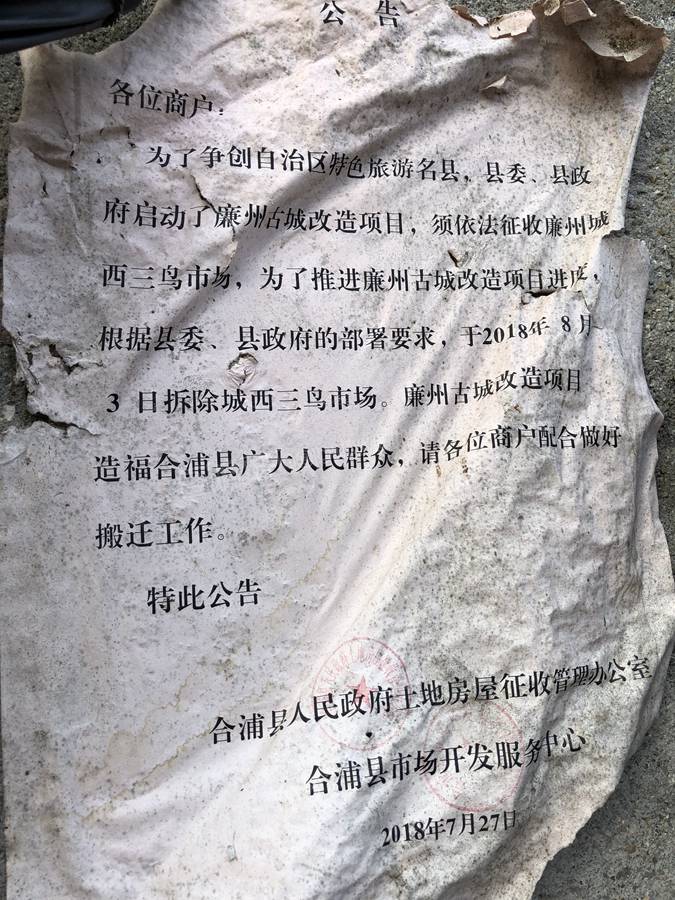 公告
各位商户：
为了争创自治区特色旅游名县，县委、县政
府启动了廉州古城改造项目，须依法征收廉州城
西三鸟市场，为了推进廉州古城改造项目进度，
根据县委、县政府的部署要求，于2018年 8 月
3 日拆除城西三鸟市场。廉州古城改造项目
造福合浦县广大人民群众，请各位商户配合做好
搬迁工作。
特此公告
合浦县人民政府土地房屋征收管理办公室
合浦县市场开发服务中心
2018年7月27日